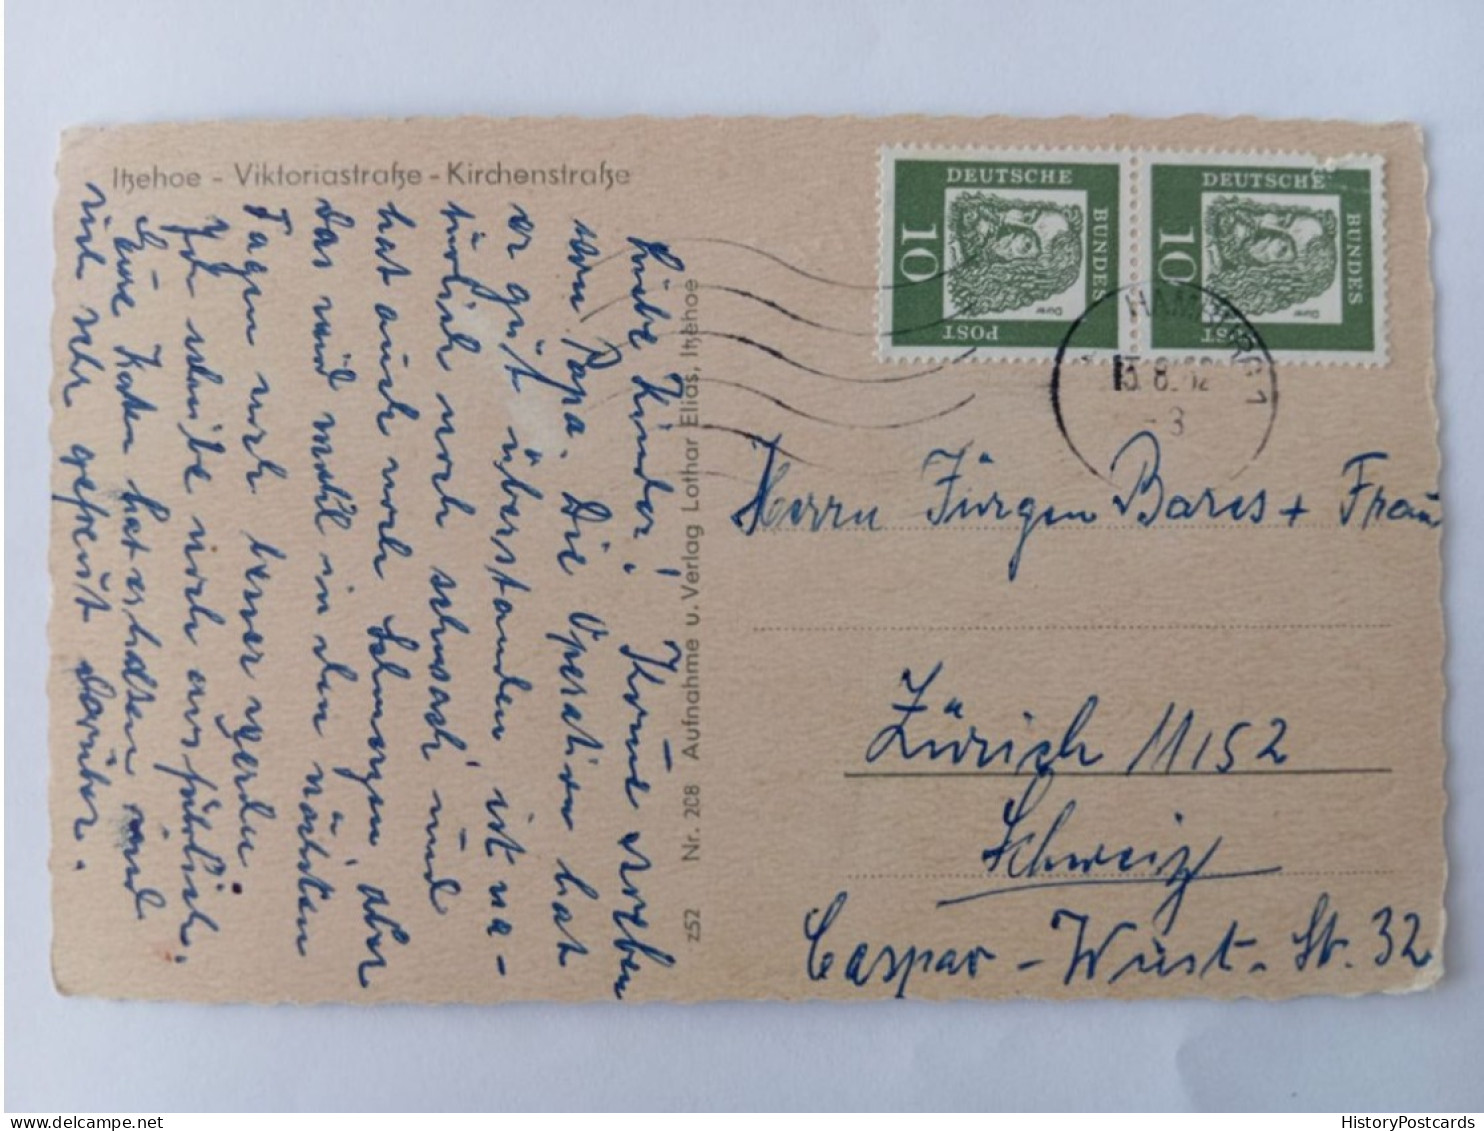 Itzehoe - Viktoriastraße - Kirchenstraße
Liebe Kinder! Komme soeben
von Papa. Die Operation hat
er gut überstanden, ist na-
türlich noch schwach und
hat auch noch Schmerzen, aber
das wird wohl in den nächsten
Tagen noch besser werden.
Ich schreibe noch ausführlich.
Eure Karten hat er
sich sehr gefreut darüber.
z52 Nr. 208 Aufnahme u. Verlag Lothar Elias, Itzehoe
DEUTSCHE
BUNDES
POST
10
Dürer
DEUTSCHE
BUNDES
POST
10
Dürer
HAMBURG 1
Herrn Jürgen Bares + Frau
Zürich 11/52
Schweiz
Caspar-Wüst-Str. 32
HistoryPostcards